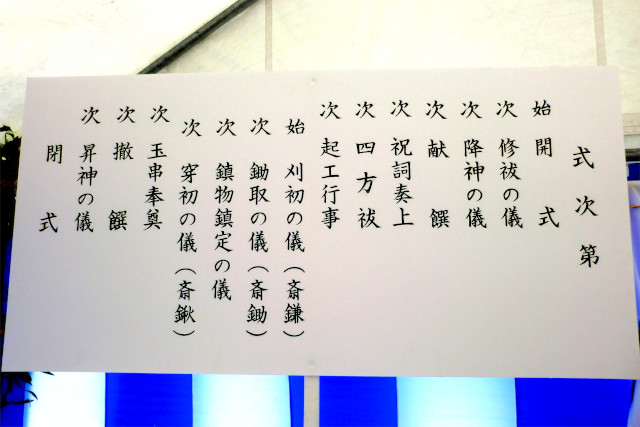 式次第
始 開式
次 修祓の儀
次 降神の儀
次 献饌
次 祝詞奏上
次 四方祓
次 起工行事
始 刈初の儀(斎鎌)
次 鋤取の儀(斎鋤)
次 鎮物鎮定の儀
次 穿初の儀(斎鍬)
次 玉串奉奠
次 撤饌
次 昇神の儀
閉式